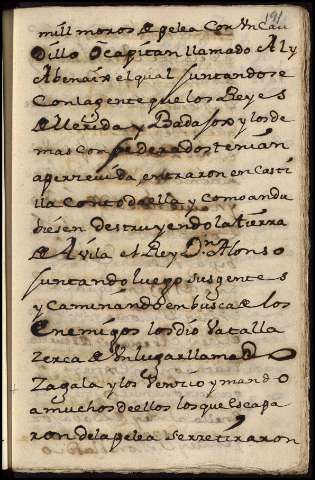 191
mill moros de pelea Con Vn Cau
dillo O capitan llamado Aly
Abenaix el qual Juntandose
Con la gente que los Reyes
de Merida y Badajox y los de
mas Confederados tenian
apercevida, entraron en Casti
lla Con todo ella y Como andu
biesen destruyendo la tierra
de Avila el Rey Dn Alonso
Juntando luego sus gentes
y Caminando en busca de los
Enemigos los dio Vatalla
Zerca de Vn lugar llamado
Zagala y los Vencio y mando
a muchos de ellos los que escapa
ron de la pelea se rretiraron